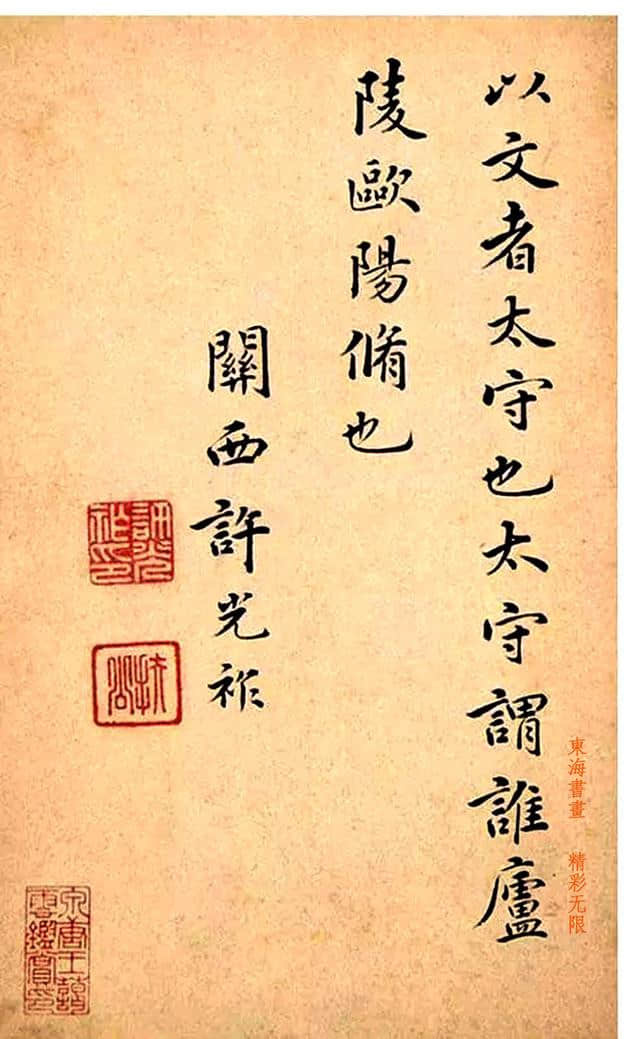 以文者太守也太守謂誰廬
陵歐陽脩也
關西許光祚
許光祚印
東海書畫 精彩无限